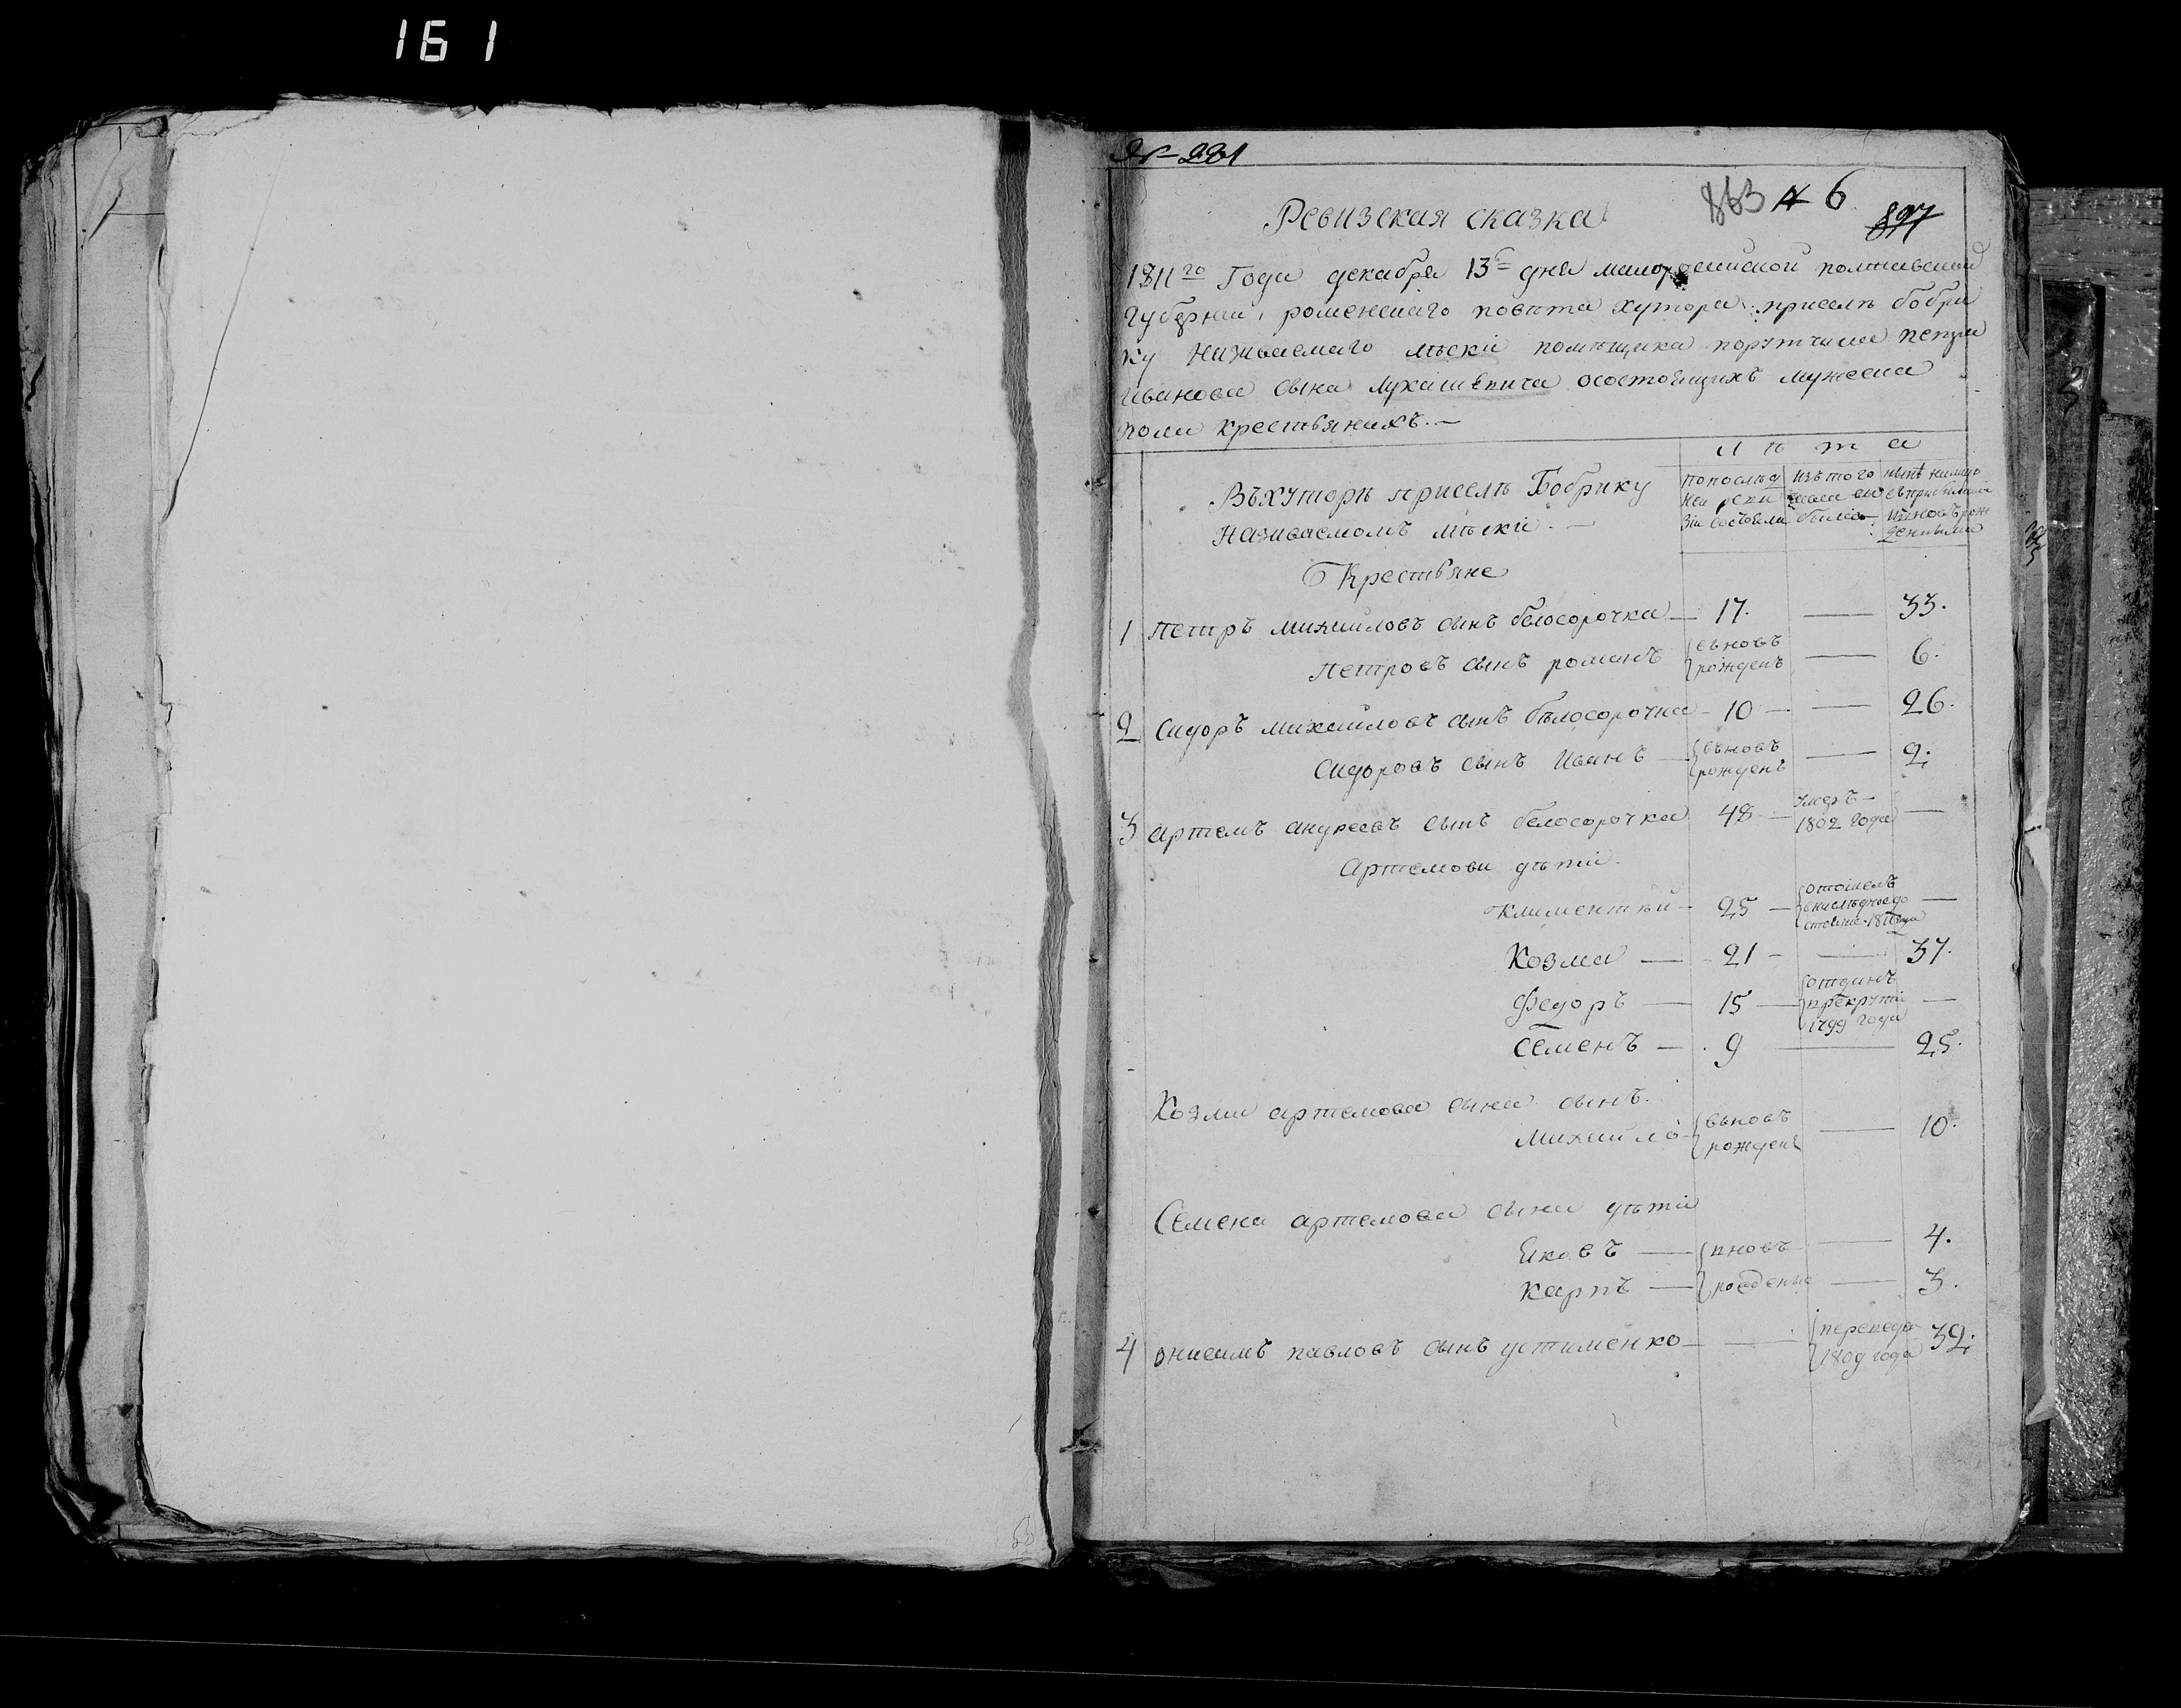 161
№ 221
863 № 6
897
Ревизская сказка
1811го Года декабря 13г дня малороссийской полтавской
Губернии, роменскаго повѣта хутора приселѣ бобри
ку називаемаго лѣскіи помѣщика порутчика петра
Иванова сына лукашевича осостоящихъ мужеска
пола крестьянихъ. —
Лѣта
Въхуторѣ приселѣ Бобрику
называемомъ лѣскіи. —
попослѣд
ней реви
зіи состояли
изътого
числа вы
было
нынѣ налицо
Крестьяне
1 Петръ михайловъ сынъ белосорочка — 17. — 33.
Петровъ сынъ романъ вьновъ рожденъ — 6.
2 Сидоръ михайловъ сынъ бѣлосорочка — 10 — 26.
Сидоровъ сынъ Иванъ — вьновъ рожденъ — 2.
3 артемъ андреевъ сынъ белосорочка 48 — умеръ 1802 года —
Артемови дѣти.
климентий — 25 —
Козма — 21 — 37.
Федоръ — 15 — отданъ 1799 года —
Семенъ — 9 — 25.
Козми артемова сына сынъ.
михайло вьновъ рожденъ — 10.
Семена артемова сына дѣти
Яковъ — вновъ — 4.
карпъ — рожденые — 3.
4 онисимъ павловъ сынъ устименко — 1809 года 32.